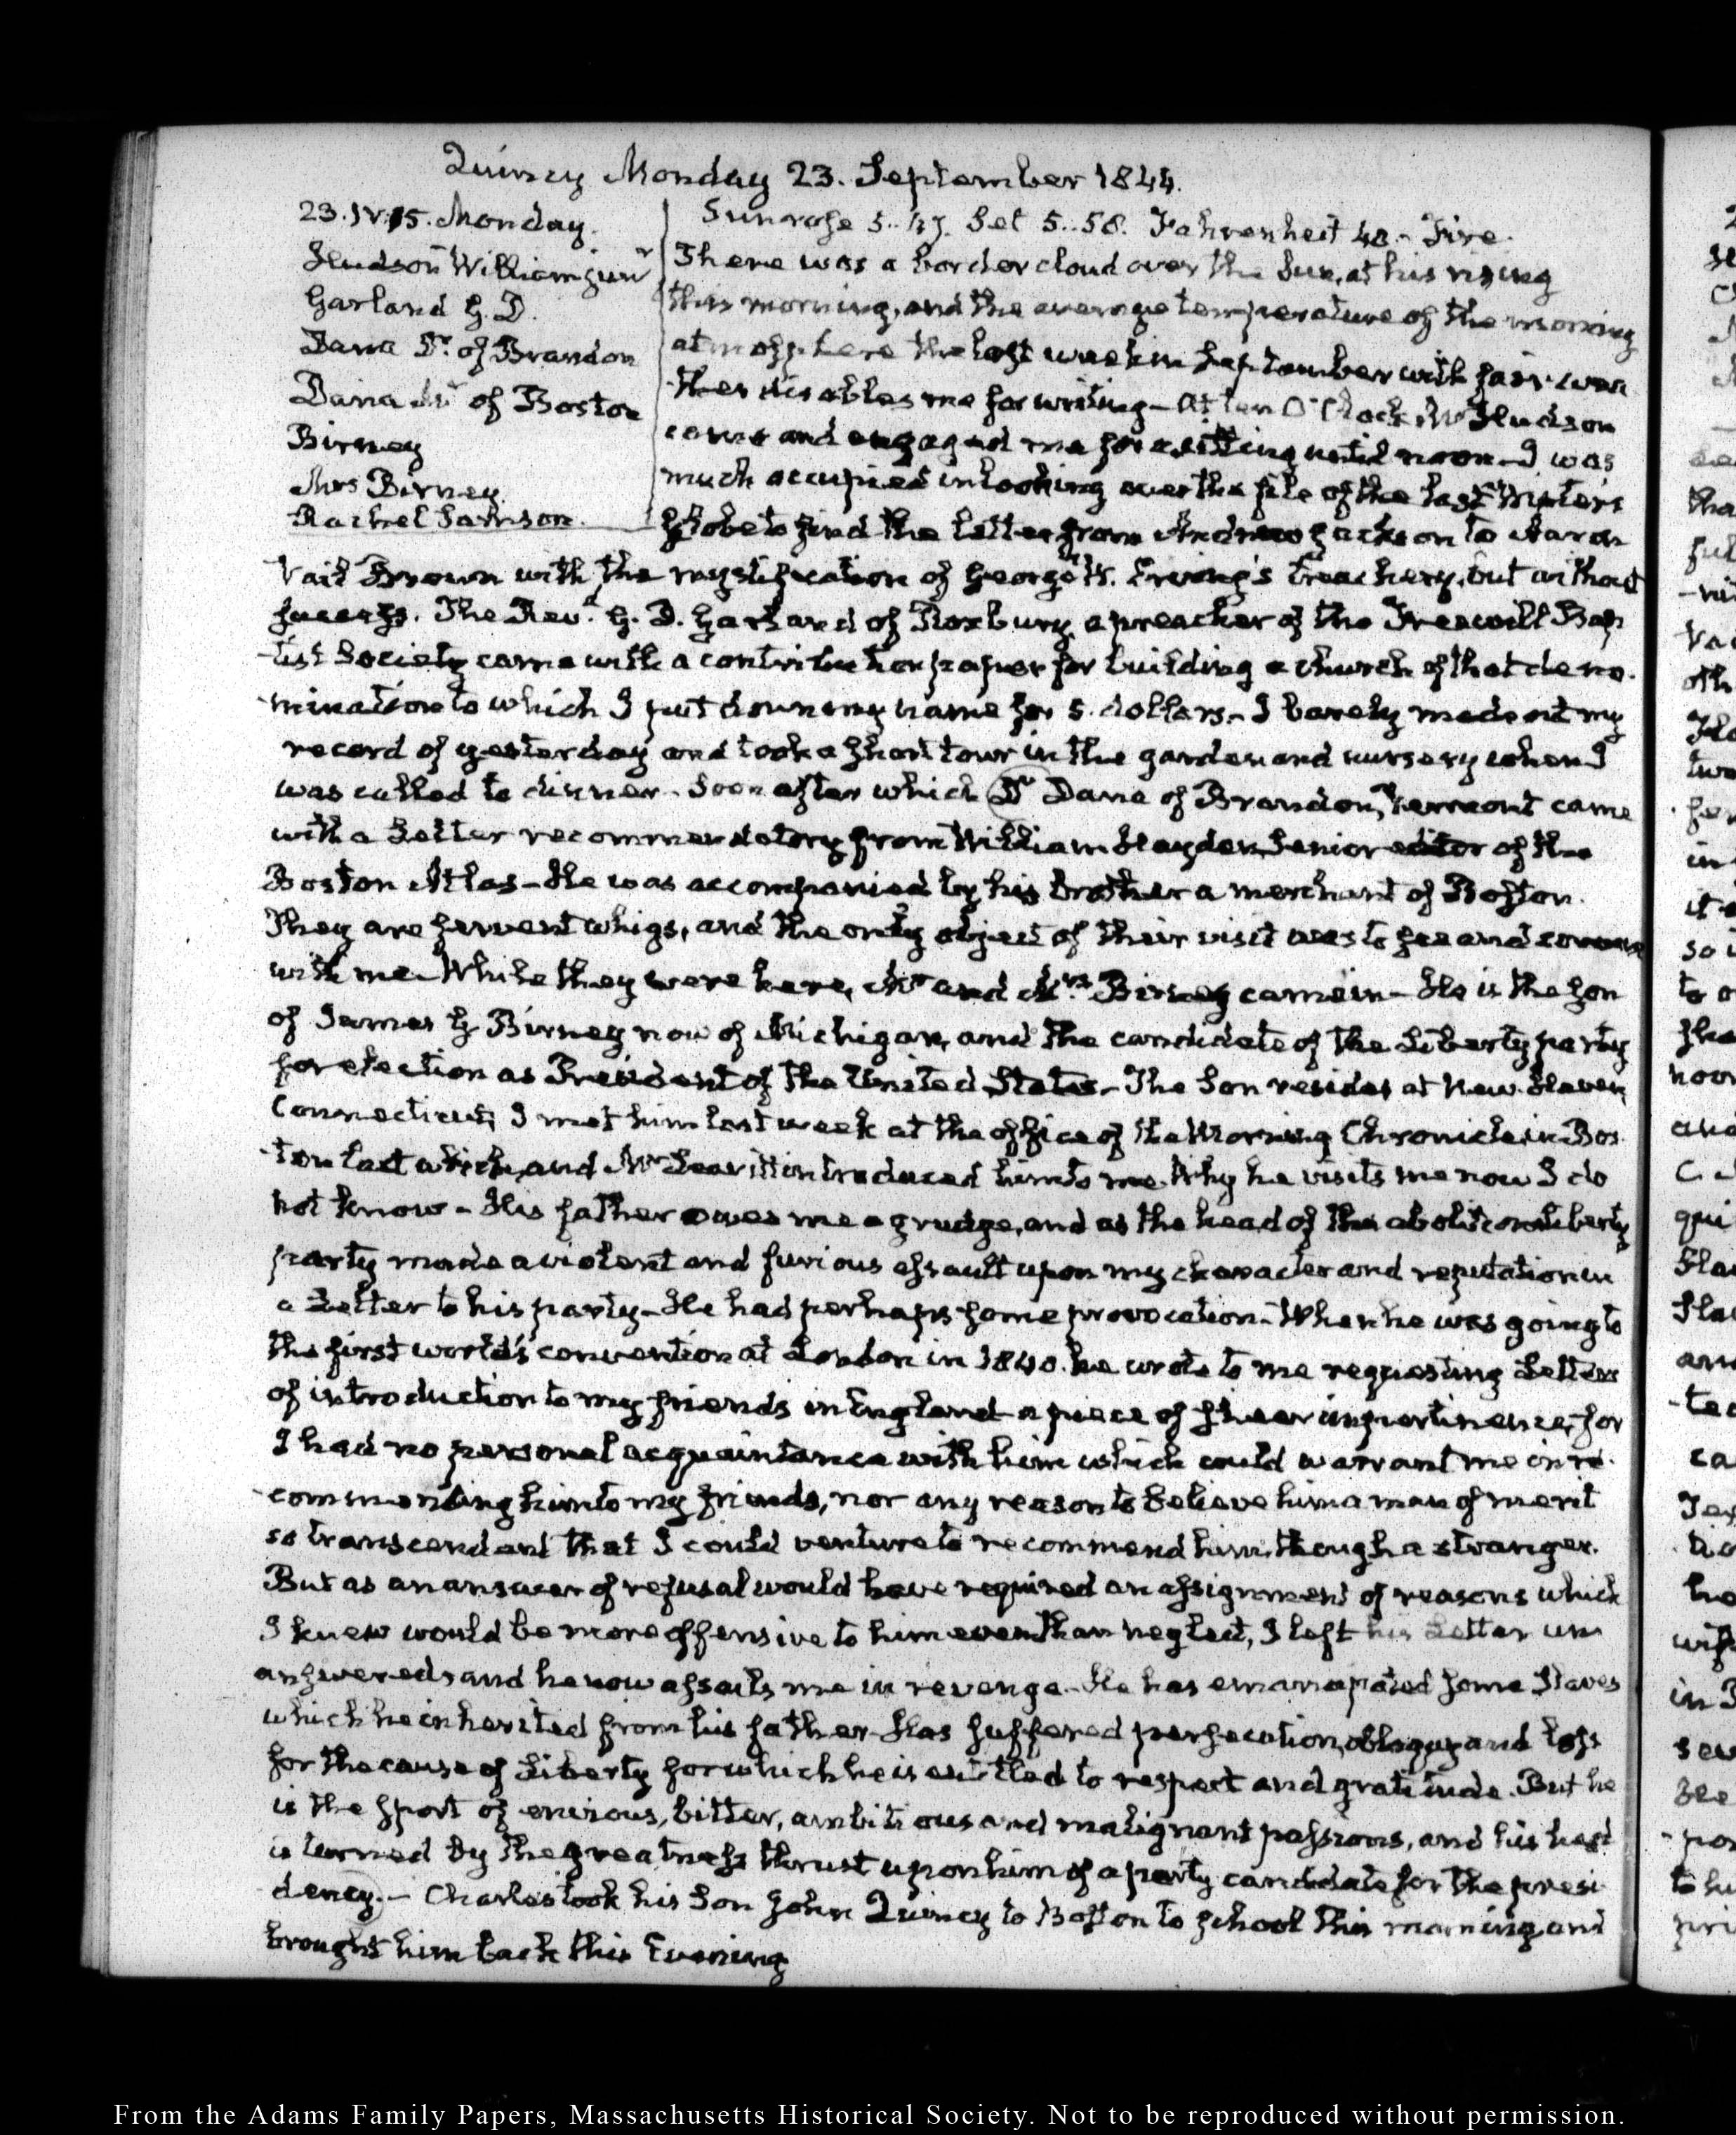 Quincy Monday 23. September 1844.
23. IV:15. Monday.
Hudson William junr
Garland G. D.
Dana Dr. of Brandon
Dana Mr of Boston
Birney
Mrs Birney
Rachel Samson.
Sunrose 5..47. Set 5..58. Fahrenheit 42. - Fire.
There was a border cloud over the Sun, at his rising
this morning, and the average temperature of the morning
atmosphere the last week in September with fair wea
ther disables me for writing - At ten O'Clock Mr Hudson
came and engaged me for a sitting until noon - I was
much occupied in looking over the file of the last Winter's
Globe to find the letter from Andrew Jackson to Aaron
Vail Brown with the mystification of George W. Erving's treachery, but without
success. The Revd. G. D. Garland of Roxbury a preacher of the Freewill Bap
-tist Society came with a contribution paper for building a church of that deno-
mination to which I put down my name for 5. dollars. - I barely made out my
record of yesterday and took a short tour in the garden and nursery when I
was called to dinner - Soon after which Dr Dana of Brandon, Vermont came
with a Letter recommendatory from William Hayden Senior editor of the
Boston Atlas - He was accompanied by his brother a merchant of Boston.
They are fervent whigs, and the only object of their visit was to see and converse
with me - While they were here, Mr and Mrs. Birney came in - He is the Son
of James G Birney now of Michigan, and the candidate of the Liberty party
for election as President of the United States. - The Son resides at New-Haven,
Connecticut, I met him last week at the office of the Morning Chronicle in Bos
-ton last which, and Mr Leavitt introduced him to me. Why he visits me now I do
not know - His father owes me a grudge, and as the head of the abolition liberty
party made a violent and furious assault upon my character and reputation in
a Letter to his party - He had perhaps some provocation - When he was going to
the first world's convention at London in 1840. he wrote to me requesting Letters
of introduction to my friends in England - a piece of sheer impertinence, for
I had no personal acquaintance with him which could warrant me in re-
-commending him to my friends, nor any reason to believe him a man of merit
so transcendant that I could venture to recommend him though a stranger.
But as an answer of refusal would have required an assignment of reasons which
I knew would be more offensive to him even than neglect, I left his Letter un
answered, and he now assails me in revenge - He has emancipated some Slaves
which he inherited from his father - Has suffered persecution, obloquy and loss
for the cause of Liberty for which he is entitled to respect and gratitude. But he
is the sport of envious, bitter, ambitious and malignant passions, and his head
is turned by the greatness thrust upon him of a party candidate for the presi-
dency. - Charles took his Son John Quincy to Boston to school this morning, and
brought him back this Evening
From the Adams Family Papers, Massachusetts Historical Society. Not to be reproduced without permission.